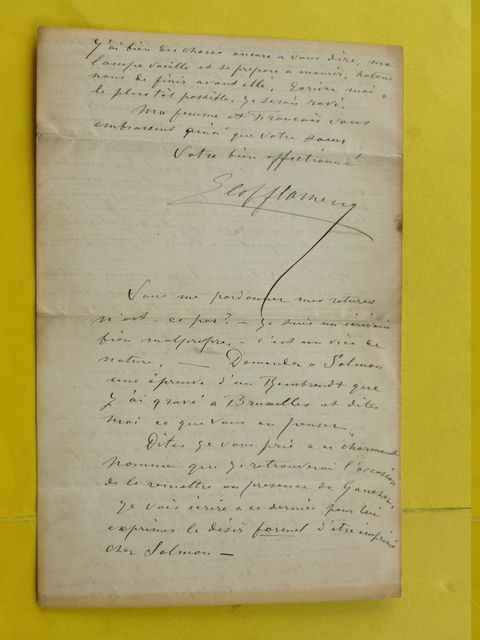 J'ai bien des choses encore a vous dire, ma
lampe vacille et se prepare a mourir, hatons
nous de finir avant elle. Ecrivez moi
le plus tôt possible, je serais ravi.
Ma femme et Francois vous
embrassent ainsi que votre soeur
Votre bien affectionné
Leop flameng
Vous me pardonnez mes ratures
n'est-ce pas? - Je suis un écrivain
bien malpropre, - c'est un vice de
nature. — Demandez a Salmon
une épreuve d'un Rembrandt que
j'ai gravé a Bruxelles et dites
moi ce que vous en penser.
Dites je vous prie a ce charmant
homme que je retrouverai l'occasion
de le remettre en presence de Gaucherel
Je vais écrire a ce dernier pour lui
exprimer le désir formel d'être imprimé
chez Salmon —